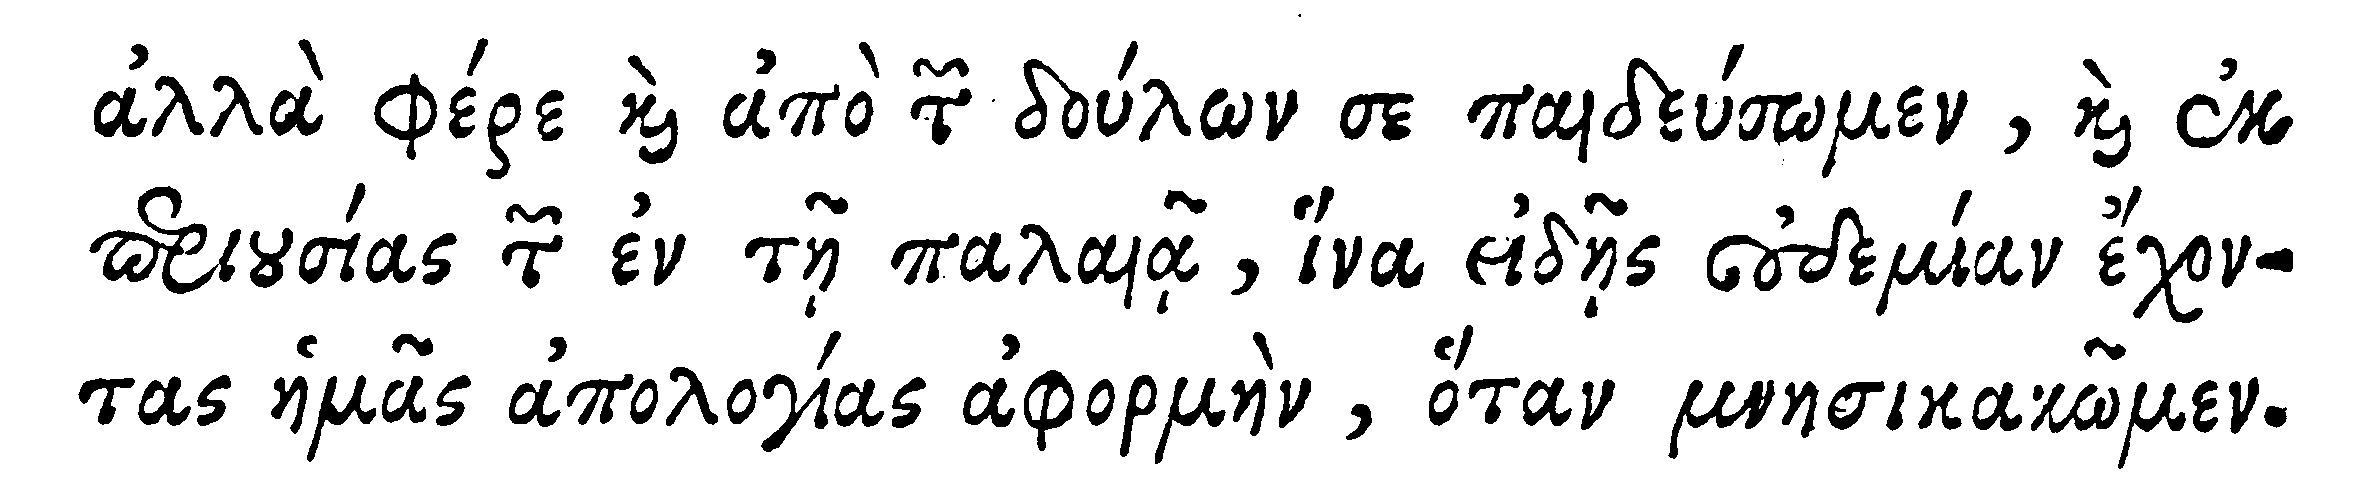 ἀλλὰ φέρε καὶ ἀπὸ τῶν δούλων σε παιδεύσωμεν, καὶ ἐκ
περιουσίας τῶν ἐν τῇ παλαιᾷ, ἵνα εἰδῇς οὐδεμίαν ἔχον-
τας ἡμᾶς ἀπολογίας ἀφορμὴν, ὅταν μνησικακῶμεν.